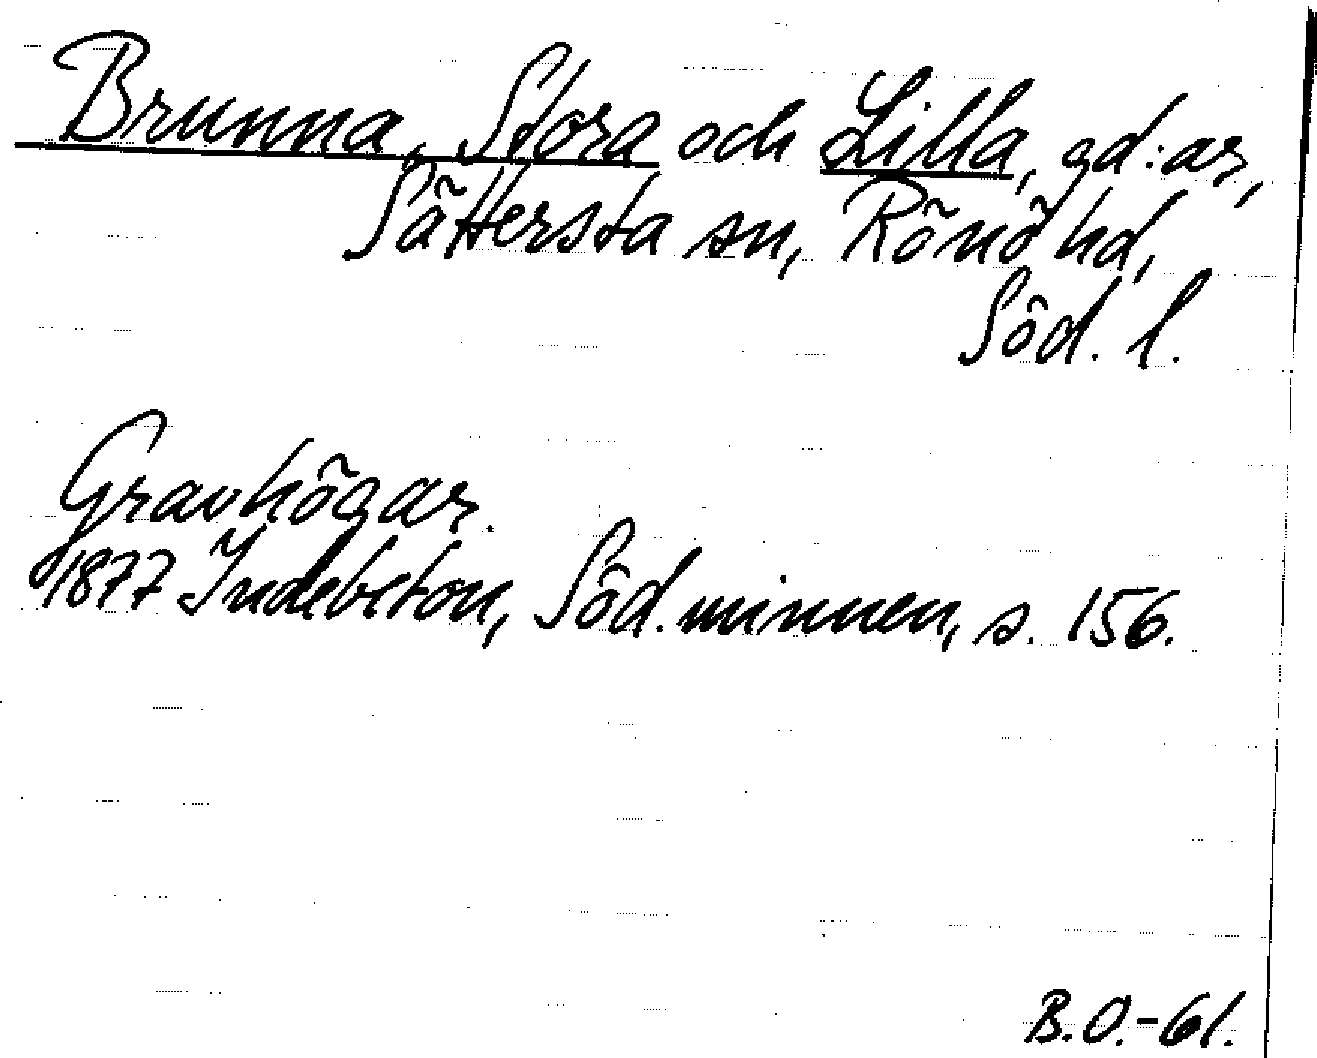 Brunna, Stora och Lilla, gd:ar,
Sättersta sn, Rönö hd,
Söd. l.
Gravhögar.
1877 Indebetou, Söd. minnen, s. 156.
B.O.-61.